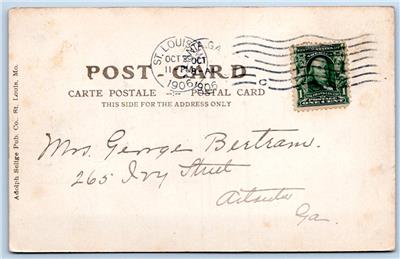 ST. LOUIS
OCT
OCT
11
1906
1906
POST CARD
CARTE POSTALE --:-- POSTAL CARD
THIS SIDE FOR THE ADDRESS ONLY
Adolph Selige Pub. Co. St. Louis, Mo.
ONE CENT
Mrs. George Bertram.
265 Ivy Street
Atlanta
Ga.